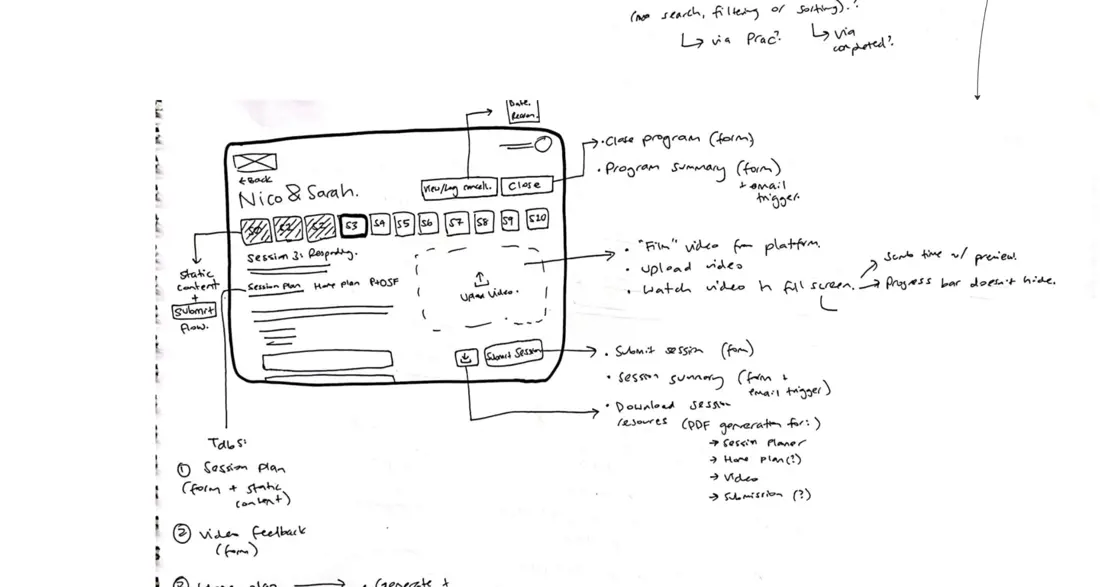 (no search, filtering or sorting).?
↳ via Prac?
↳ via completed?
Date.
Reason.
← Back
Nico & Sarah.
View/Log cancell.
Close
S0 S1 S2 S3 S4 S5 S6 S7 S8 S9 S10
Session 3: Responding.
Session Plan Home plan
Upload Video.
Submit Session
static
content
+
submit
flow.
• Close program (form)
• Program summary (form)
+ email
trigger.
• "Film" video from platform.
• Upload video
• Watch video in full screen.
→ w/ preview.
→ Progress bar doesn't hide.
• Submit session (form)
• Session summary (form +
email trigger)
• Download session
resources (PDF generation for:)
→ Session Planner
→ Home Plan (?)
→ Video
→ Submission (?)
Tabs:
① Session plan
(form + static
content)
② Video feedback
(form)
③ Home plan → • (generate +